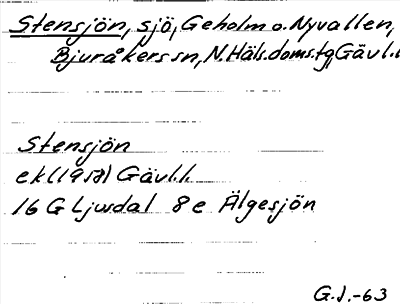 Stensjön, sjö, Geholm o. Nyvallen,
Bjuråkers sn, N. Häls. doms. tg, Gävl. l.
Stensjön
ek (1957) Gävl. l.
16 G Ljusdal 8 e Älgesjön
G.J.-63